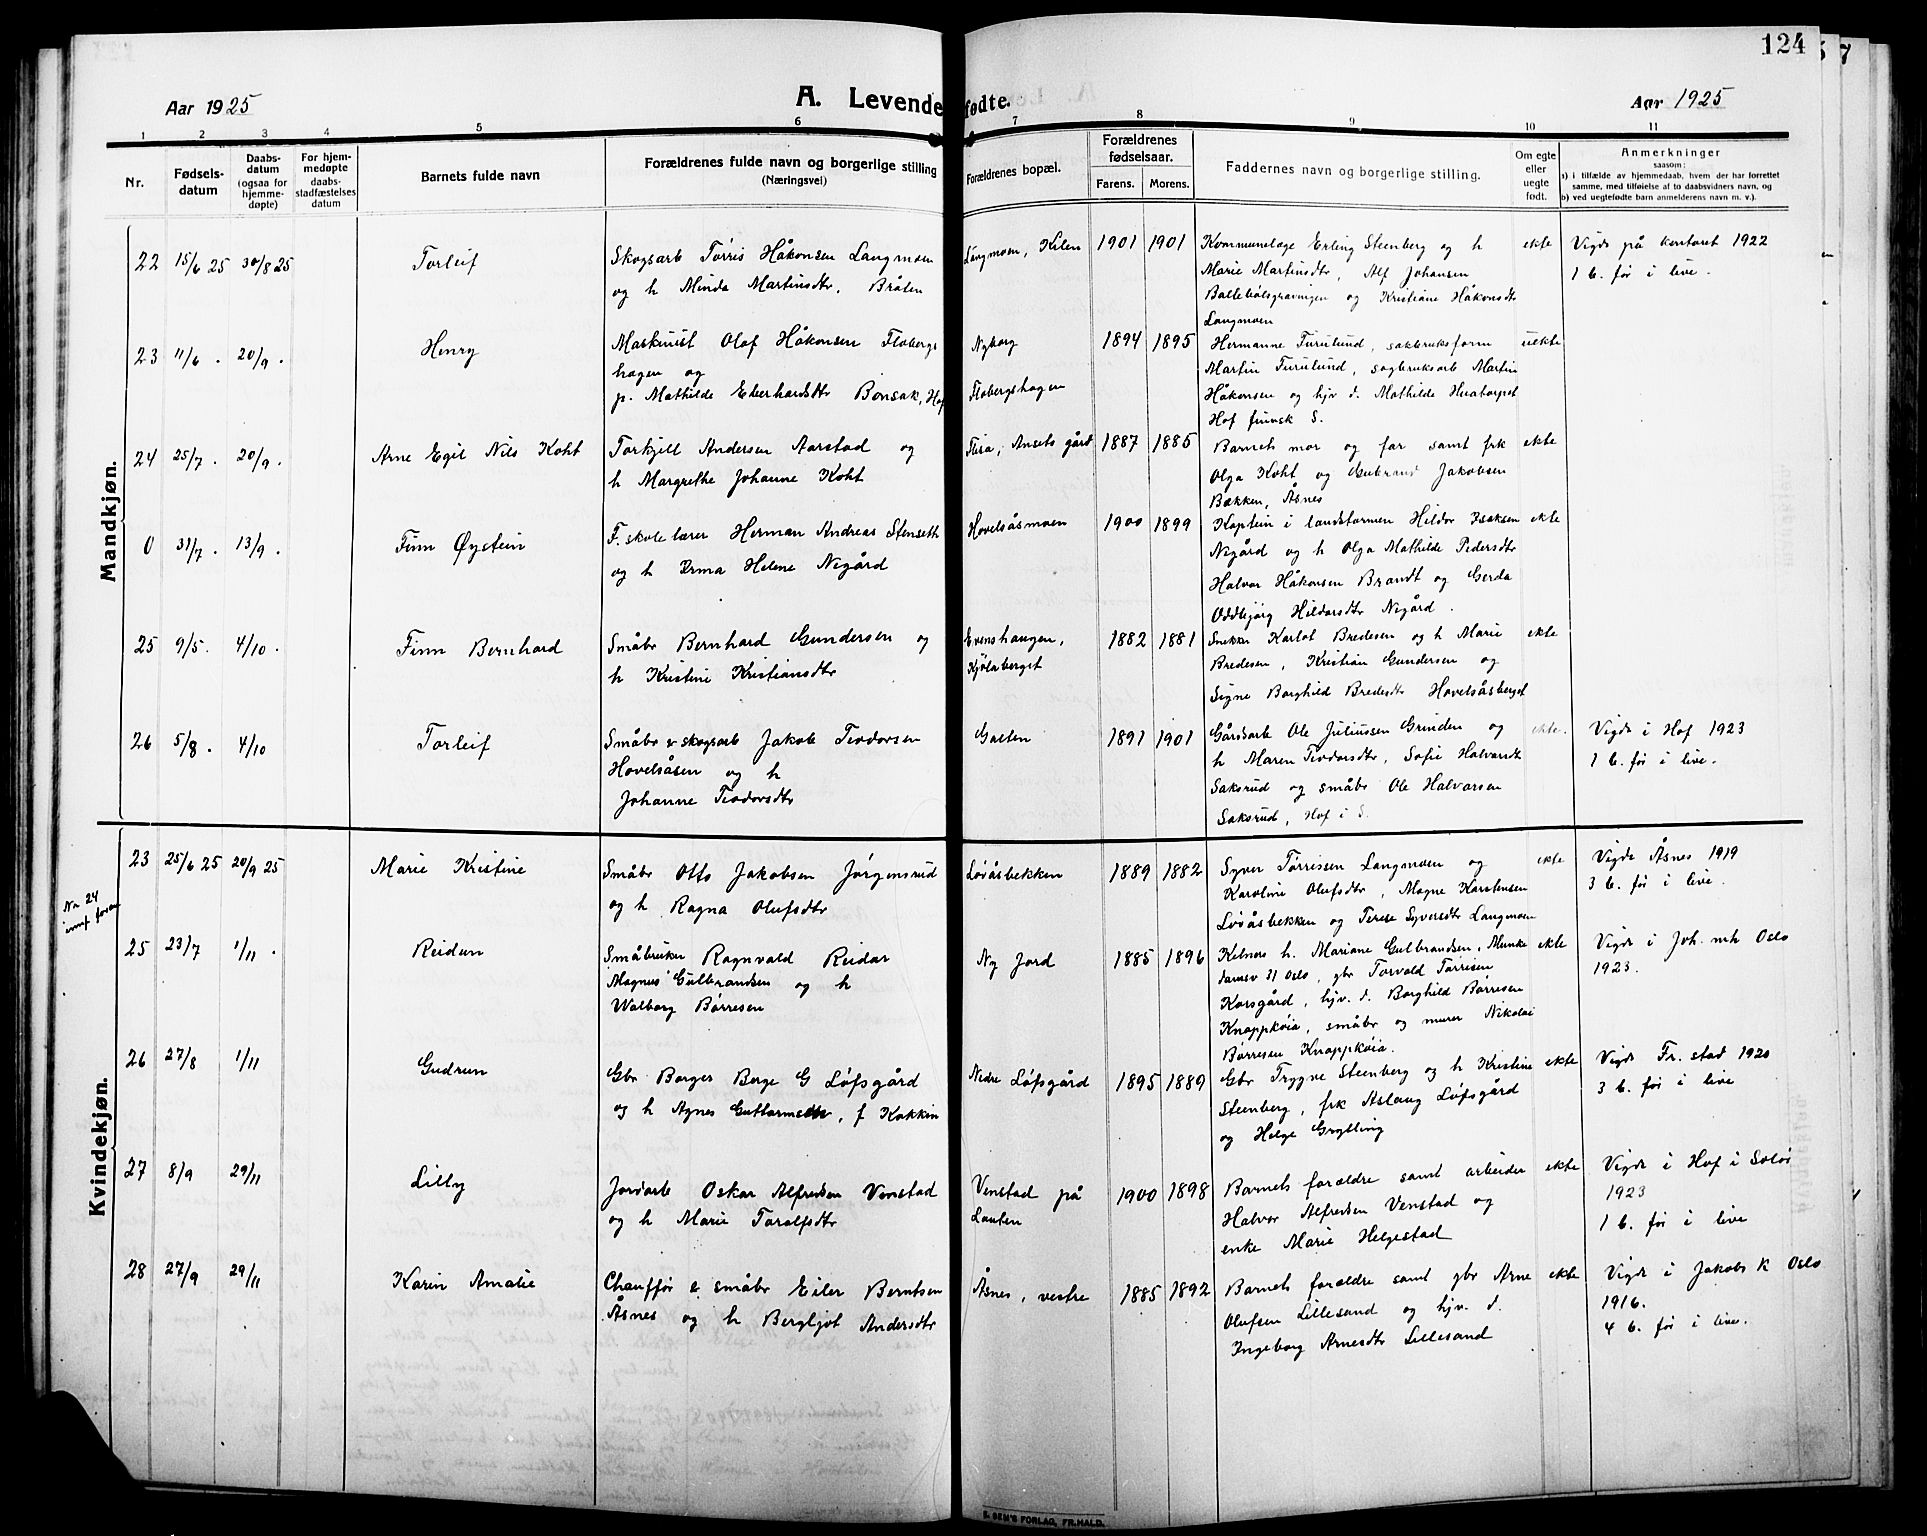 124
Aar 1925
A. Levendefødte.
Aar 1925
1 2 3 4 5 6 7 8 9 10 11
Nr.
Fødsels-
datum
Daabs-
datum
(ogsaa for
hjemme-
døpte)
For hjem-
medøpte
daabs-
stadfæstelses
datum
Barnets fulde navn
Forældrenes fulde navn og borgerlige stilling
(Næringsvei)
Forældrenes bopæl.
Forældrenes
fødselsaar.
Farens. Morens.
Faddernes navn og borgerlige stilling.
Om egte
eller
uegte
født.
Anmerkninger
saasom:
a) i tilfælde av hjemmedaab, hvem der har forrettet
samme, med tilføielse af to daabsvidners navn, og
b) ved uegtefødte barn anmelderens navn m. v.).
Mandkjøn.
22 15/6 25 30/8 25 Torleif
Skogsarb Tørris Håkonsen Langmoen
og h Minda Martinsdtr, Bråten
Langmoen, Kilen
1901 1901
Kommunelage Erling Steenberg og h
Marie Martinsdtr, Alf Johansen
Ballebølsgravningen og Kristiane Håkonsdtr
Langmoen
ekte
Vigde på kontoret 1922
1 b. før i live.
23 11/6 . 20/9 . Henry
Maskinist Olaf Håkonsen Flobergs
hagen og
p. Mathilde Eberhardsdtr Bonsak, Hof
Nyborg
Flobergshagen
1894 1895
Hermanne Furulund, sakbruksform
Martin Furulund, sagbruksarb Martin
Håkonsen og hjv d. Mathilde
Hof finnsk S.
uekte
24 25/7 . 20/9 . Arne Egil Nils Koht
Torkjell Andersen Aarstad og
h Margrethe Johanne Koht
Flisa, Ansets gård
1887 1885
Barnets mor og far samt frk
Olga Koht og Gubrand Jakobsen
Bækken, Åsnes
ekte
0 31/7 . 13/9 . Finn Øystein
F. skole lærer Herman Andreas Stenseth
og h Irma Helene Negård
Hovelsåsmoen
1900 1899
Kaptein i landstormen Hildor Isaksen
Negård og h Olga Mathilde Pedersdtr
Halvor Håkonsen Brandt og Gerda
Oddbjørg Hildorsdtr Negård.
ekte
25 9/5 . 4/10 . Finn Bernhard
Småbr Bernhard Gundersen og
h Kristine Kristiansdtr
Evenshaugen,
Kjølaberget
1882 1881
Snekker Karlot Bredesen og h Marie
Bredesen, Kristian Gundersen og
Signe Borghild Bredesdtr Hovelsåsberget
ekte
26 5/8 . 4/10 Torleif
Småbr & skogsarb Jakob Teodorsen
Hovelsåsen og h
Johanne Teodorsdtr
Galten
1891 1901
Gårdsarb Ole Juliussen Grinden og
h Maren Teodorsdtr, Sofie Halvorsdtr
Saksrud og småbr Ole Halvorsen
Saksrud, Hof i S.
ekte.
Vigde i Hof 1923
1 b. før i live.
Kvindekjøn.
Nr 24
innf foran
23 25/6 25 20/9 25 Marie Kristine
Småbr Otto Jakobsen Jørgensrud
og h Ragna Olufsdtr
Løvåsbekken
1889 1882
Syver Tørrissen Langmoen og
Karoline Olufsdtr, Magne Karstensen
Løvåsbekken og Terese Syversdtr Langmoen
ekte
Vigde Åsnes 1919
3 b. før i live.
25 23/7 1/11 . Reidun
Småbruker Ragnvald Reidar
Magnus Gulbrandsen og h
Walborg Børresen
Ny Jord
1885 1896
Kelners h. Mariane Gulbrandsen, Munke
damsv 31 Oslo, gbr Torvald Tørrisen
Korsgård, hjv. d. Borghild Børresen
Knappkøia, småbr og murer Nikolai
Børresen Knappkøia.
ekte
Vigde i Joh. mh Oslo
1923.
26 27/8 1/11 Gudrun
Gbr Borger Berge G Løfsgård
og h Agnes Guttormsdtr, f Kokkin
Nedre Løfsgård
1895 1889
Gbr Trygve Steenberg og h Kristine
Steenberg, frk Aslaug Løfsgård
og Helge Grylling
ekte
Vigde Fr. stad 1920
3 b. før i live
27 8/9 29/11 Lilly
Jordarb Oskar Alfredsen Venstad
og h Marie Toralfsdtr
Venstad på
Lauten
1900 1898
Barnets forældre samt arbeider
Halvor Alfredsen Venstad og
enke Marie Helgestad
ekte
Vigde i Hof i Solør
1923
1 b. før i live
28 27/9 29/11 Karin Amalie
Chauffør & småbr Eiler Berntsen
Åsnes og h Bergljot Andersdtr
Åsnes, vestre
1885 1892
Barnets forældre samt gbr Arne
Olufsen Lillesand og hjv. d.
Ingeborg Arnesdtr Lillesand
ekte
Vigde i Jakobs K Oslo
1916.
4 b. før i live.
S. SEM'S FORLAG, FR.HALD.